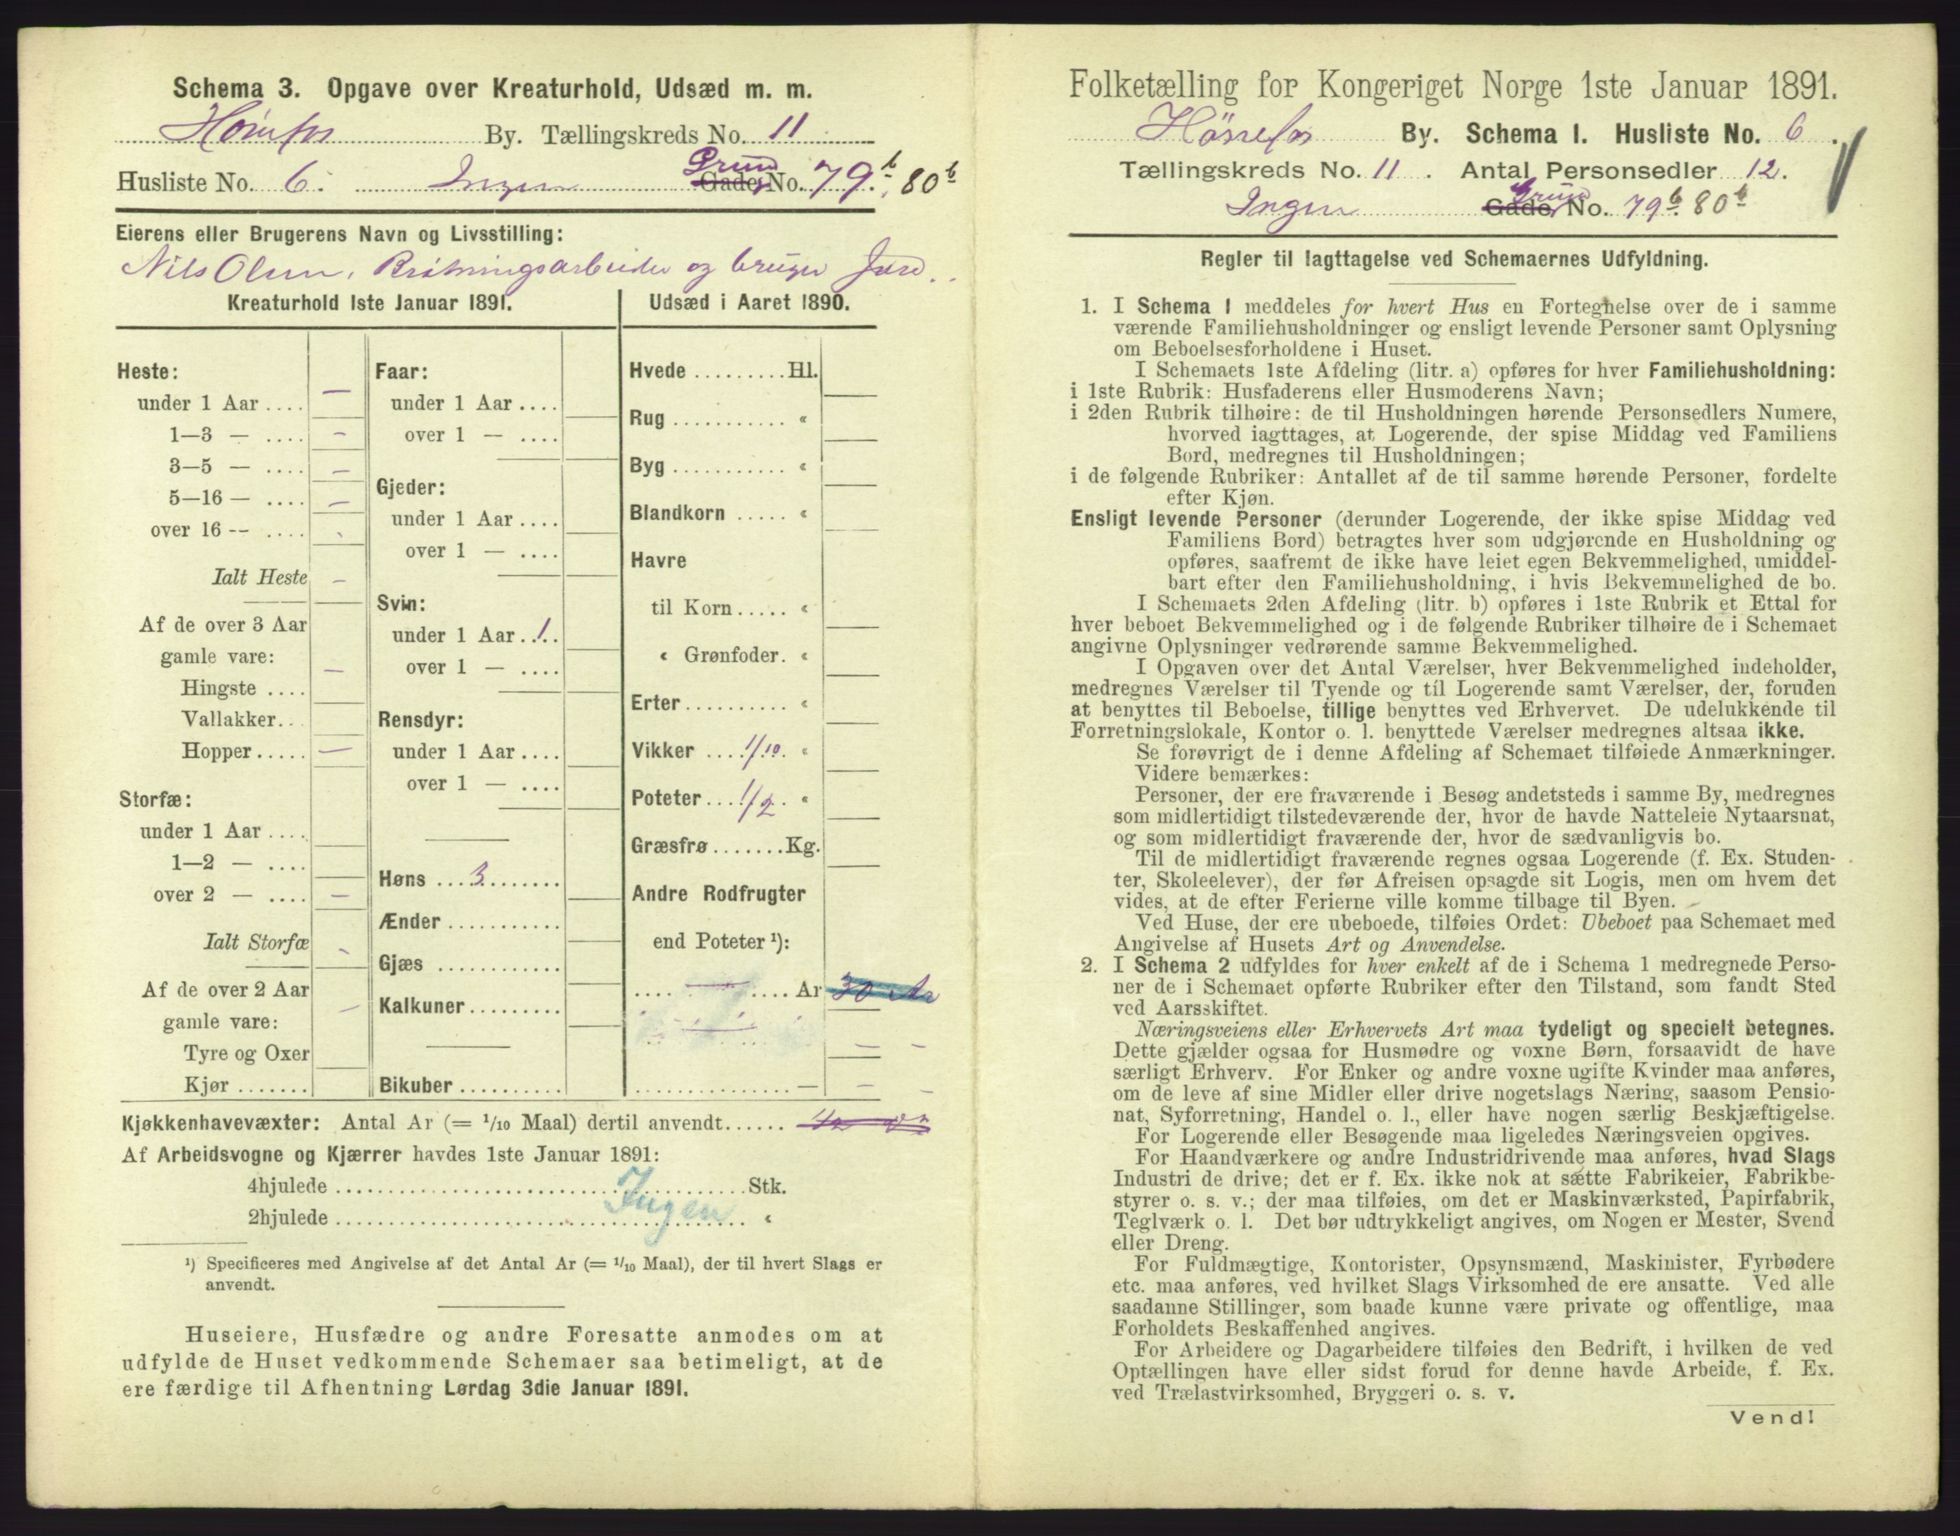 Schema 3. Opgave over Kreaturhold, Udsæd m. m.
Hønefos By. Tællingskreds No. 11
Husliste No. 6. Ingen Gade Grund No. 79b. 80b
Eierens eller Brugerens Navn og Livsstilling:
Nils Olsen, Brötningsarbeider og bruger Jord.
Kreaturhold 1ste Januar 1891.
Heste:
under 1 Aar .... —
1—3 — .... —
3—5 — .... —
5—16 — .... —
over 16 — ....
Ialt Heste —
Af de over 3 Aar
gamle vare: —
Hingste ....
Vallakker..
Hopper ..... —
Storfæ:
under 1 Aar ....
1—2 — ....
over 2 — .... —
Ialt Storfæ -
Af de over 2 Aar —
gamle vare:
Tyre og Oxer
Kjør .......
Faar:
under 1 Aar ....
over 1 — ....
Gjeder:
under 1 Aar ....
over 1 — ....
Svin:
under 1 Aar .. 1.
over 1 — ....
Rensdyr:
under 1 Aar ....
over 1 — ....
Høns ... 3 .......
Ænder ...........
Gjæs ............
Kalkuner .........
Bikuber ..........
Udsæd i Aaret 1890.
Hvede ......... Hl.
Rug ........... «
Byg ........... «
Blandkorn ..... «
Havre
til Korn ..... «
« Grønfoder. «
Erter .......... «
Vikker .... 1/10. «
Poteter ... 1/2. «
Græsfrø ....... Kg.
Andre Rodfrugter
end Poteter ¹):
.... — .... Ar 30 Ar
— —
— — —
Kjøkkenhavevæxter: Antal Ar (= 1/10 Maal) dertil anvendt ......
Af Arbeidsvogne og Kjærrer havdes 1ste Januar 1891:
4hjulede .................................. Stk.
Ingen
2hjulede .................................. «
¹) Specificeres med Angivelse af det Antal Ar (= 1/10 Maal), der til hvert Slags er
anvendt.
Huseiere, Husfædre og andre Foresatte anmodes om at
udfylde de Huset vedkommende Schemaer saa betimeligt, at de
ere færdige til Afhentning Lørdag 3die Januar 1891.
Folketælling for Kongeriget Norge 1ste Januar 1891.
Hønefos By. Schema 1. Husliste No. 6.
Tællingskreds No. 11. Antal Personsedler 12.
Ingen Gade Grund No. 79b. 80b
Regler til Iagttagelse ved Schemaernes Udfyldning.
1. I Schema 1 meddeles for hvert Hus en Fortegnelse over de i samme
værende Familiehusholdninger og ensligt levende Personer samt Oplysning
om Beboelsesforholdene i Huset.
I Schemaets 1ste Afdeling (litr. a) opføres for hver Familiehusholdning:
i 1ste Rubrik: Husfaderens eller Husmoderens Navn;
i 2den Rubrik tilhøire: de til Husholdningen hørende Personsedlers Numere,
hvorved iagttages, at Logerende, der spise Middag ved Familiens
Bord, medregnes til Husholdningen;
i de følgende Rubriker: Antallet af de til samme hørende Personer, fordelte
efter Kjøn.
Ensligt levende Personer (derunder Logerende, der ikke spise Middag ved
Familiens Bord) betragtes hver som udgjørende en Husholdning og
opføres, saafremt de ikke have leiet egen Bekvemmelighed, umiddel-
bart efter den Familiehusholdning, i hvis Bekvemmelighed de bo.
I Schemaets 2den Afdeling (litr. b) opføres i 1ste Rubrik et Ettal for
hver beboet Bekvemmelighed og i de følgende Rubriker tilhøire de i Schemaet
angivne Oplysninger vedrørende samme Bekvemmelighed.
I Opgaven over det Antal Værelser, hver Bekvemmelighed indeholder,
medregnes Værelser til Tyende og til Logerende samt Værelser, der, foruden
at benyttes til Beboelse, tillige benyttes ved Erhvervet. De udelukkende til
Forretningslokale, Kontor o. l. benyttede Værelser medregnes altsaa ikke.
Se forøvrigt de i denne Afdeling af Schemaet tilføiede Anmærkninger.
Videre bemærkes:
Personer, der ere fraværende i Besøg andetsteds i samme By, medregnes
som midlertidigt tilstedeværende der, hvor de havde Natteleie Nytaarsnat,
og som midlertidigt fraværende der, hvor de sædvanligvis bo.
Til de midlertidigt fraværende regnes ogsaa Logerende (f. Ex. Studen-
ter, Skoleelever), der før Afreisen opsagde sit Logis, men om hvem det
vides, at de efter Ferierne ville komme tilbage til Byen.
Ved Huse, der ere ubeboede, tilføies Ordet: Ubeboet paa Schemaet med
Angivelse af Husets Art og Anvendelse.
2. I Schema 2 udfyldes for hver enkelt af de i Schema 1 medregnede Perso-
ner de i Schemaet opførte Rubriker efter den Tilstand, som fandt Sted
ved Aarsskiftet.
Næringsveiens eller Erhvervets Art maa tydeligt og specielt betegnes.
Dette gjælder ogsaa for Husmødre og voxne Børn, forsaavidt de have
særligt Erhverv. For Enker og andre voxne ugifte Kvinder maa anføres,
om de leve af sine Midler eller drive nogetslags Næring, saasom Pensio-
nat, Syforretning, Handel o. l., eller have nogen særlig Beskjæftigelse.
For Logerende eller Besøgende maa ligeledes Næringsveien opgives.
For Haandværkere og andre Industridrivende maa anføres, hvad Slags
Industri de drive; det er f. Ex. ikke nok at sætte Fabrikeier, Fabrikbe-
styrer o. s. v.; der maa tilføies, om det er Maskinværksted, Papirfabrik,
Teglværk o. l. Det bør udtrykkeligt angives, om Nogen er Mester, Svend
eller Dreng.
For Fuldmægtige, Kontorister, Opsynsmænd, Maskinister, Fyrbødere
etc. maa anføres, ved hvilket Slags Virksomhed de ere ansatte. Ved alle
saadanne Stillinger, som baade kunne være private og offentlige, maa
Forholdets Beskaffenhed angives.
For Arbeidere og Dagarbeidere tilføies den Bedrift, i hvilken de ved
Optællingen have eller sidst forud for denne havde Arbeide, f. Ex.
ved Trælastvirksomhed, Bryggeri o. s. v.
Vend!